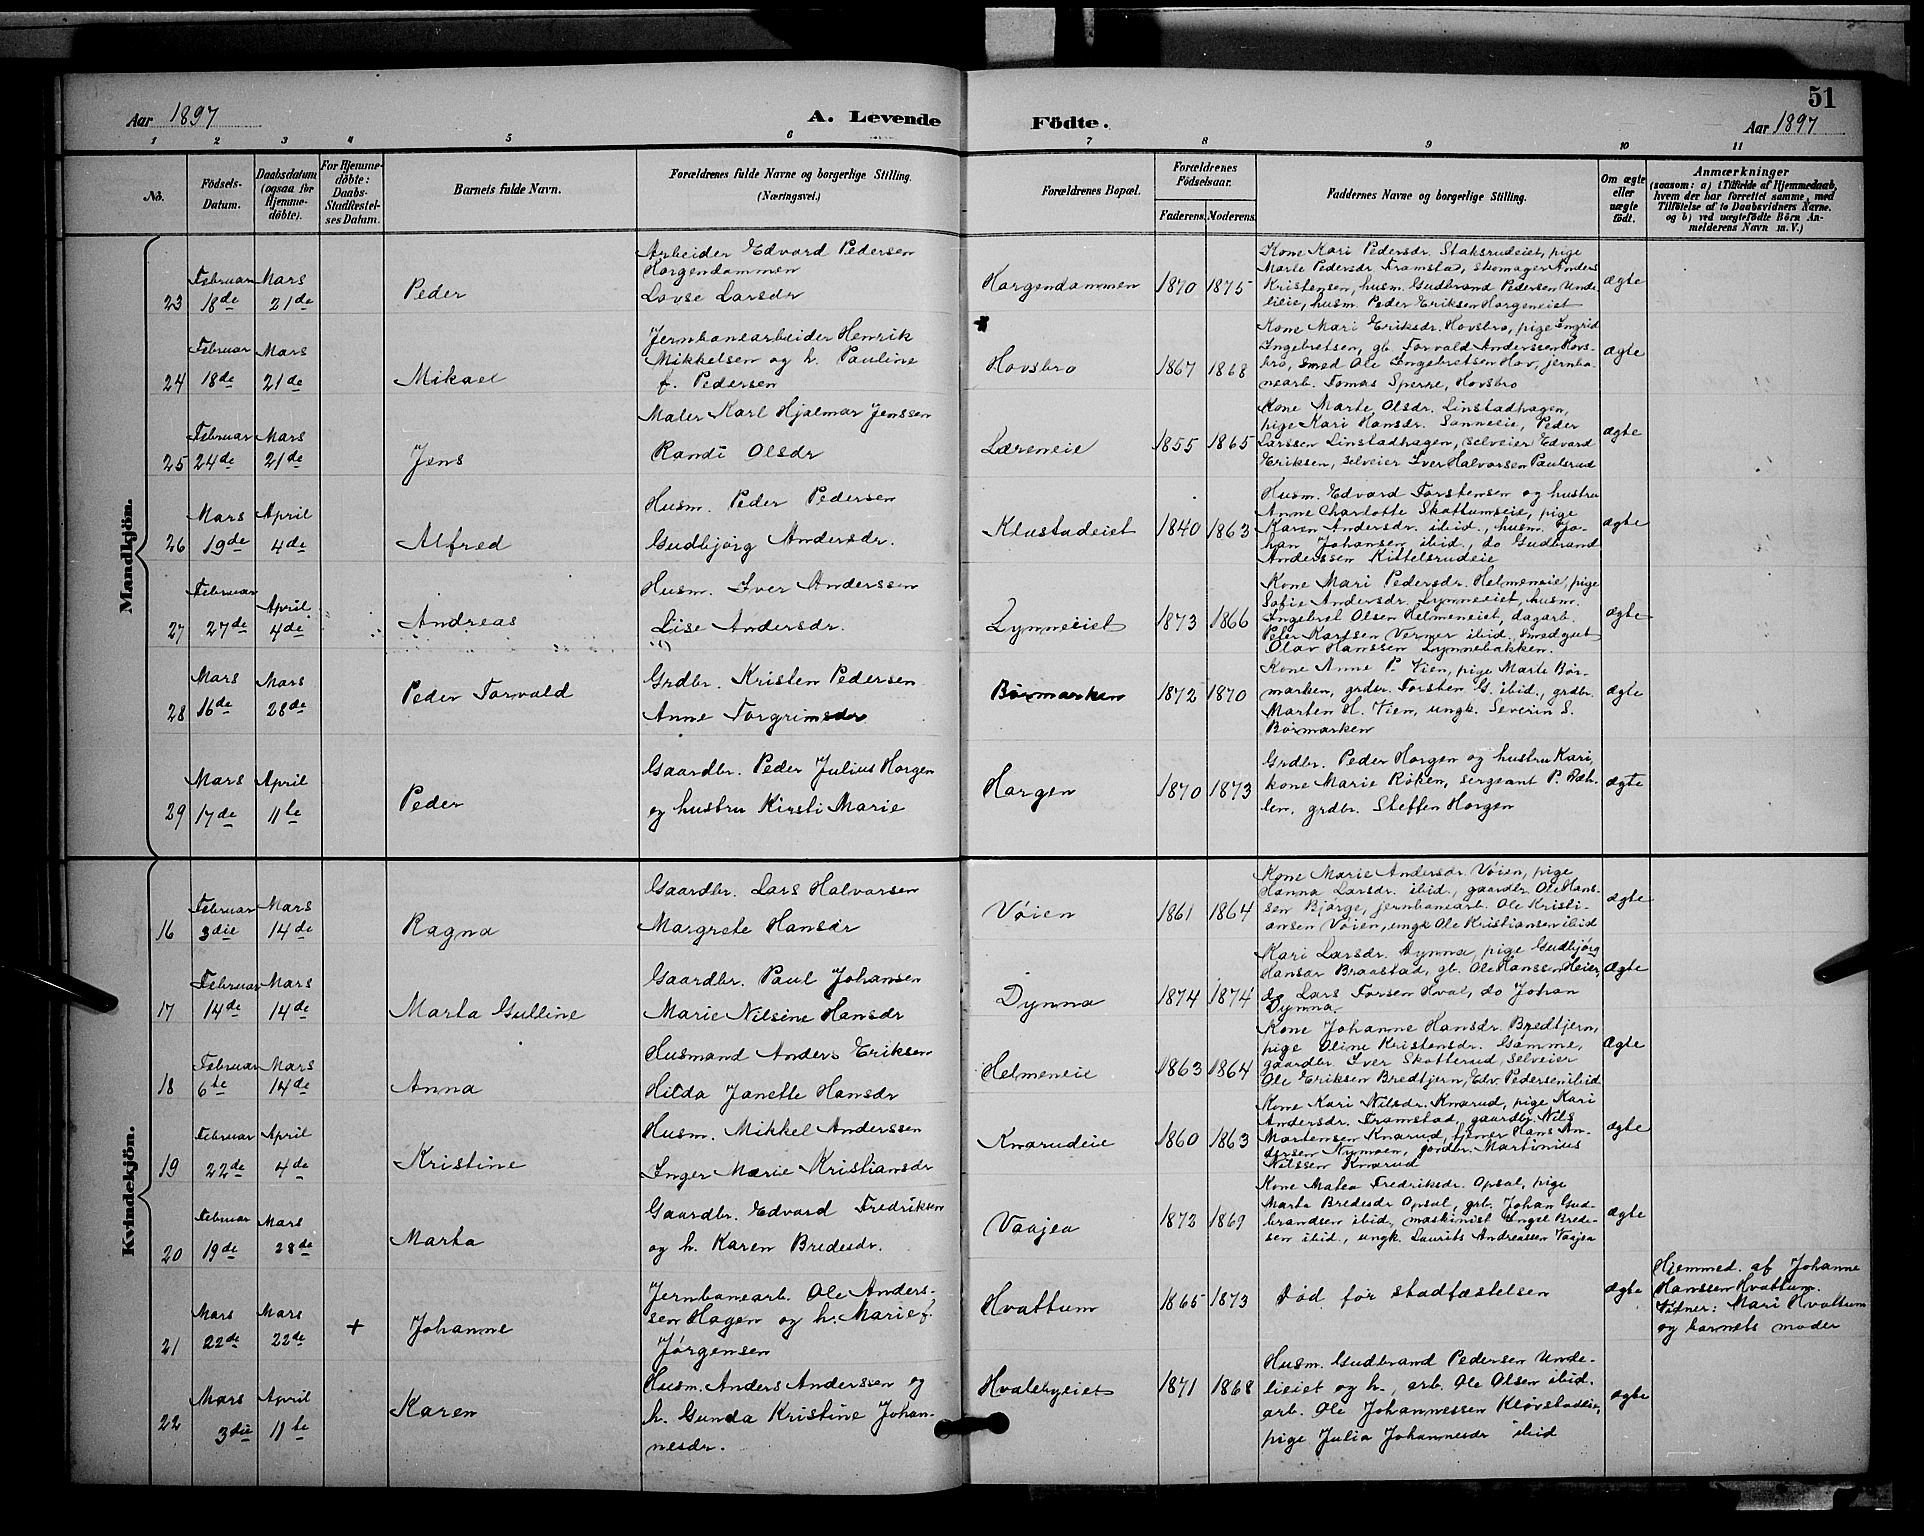 51
Aar 1897
A. Levende Födte.
Aar 1897
1 2 3 4 5 6 7 8 9 10 11
No.
Födsels-Datum.
Daabsdatum (ogsaa for Hjemme-döbte).
For Hjemme-döbte: Daabs-Stadfæstel-ses Datum.
Barnets fulde Navn.
Forældrenes fulde Navne og borgerlige Stilling.
(Næringsvei.)
Forældrenes Bopæl.
Forældrenes Födselsaar.
Faderens. Moderens.
Faddernes Navne og borgerlige Stilling.
Om ægte eller uægte födt.
Anmærkninger
(saasom: a) i Tilfælde af Hjemmedaab,
hvem der har forrettet samme, med
Tilföielse af to Daabsvidners Navne,
og b) ved uægtefödte Börn An-
melderens Navn m. V.)
Mandkjön.
23 Februar 18de Mars 21de
Peder
Arbeider Edvard Pedersen
Horgendammen
Lovse Larsdr
Horgendammen 1870 1875
Kone Kari Pedersdr. Staksrudeiet, pige
Marte Pedersdr Framstad, skomager Anders
Kristensen, husm. Gudbrand Pedersen Unde-
lieie, husm. Peder Eriksen Horgeneiet
ægte
24 Februar 18de Mars 21de
Mikael
Jernbanearbeider Henrik
Mikkelsen og h. Pauline
f. Pedersen
Hovsbro 1867 1868
Kone Mari Eriksdr. Hovsbro, pige Ingrid
Ingebretsen, gb. Torvald Anderssen Hovs-
bro, Smed Ole Ingebretsen Hov, jernba-
nearb. Tomas Sperre, Hovsbro
ægte
25 Februar 24de Mars 21de
Jens
Maler Karl Hjalmar Jenssen
Randi Olsdr
Læreneie 1855 1865
Kone Marte Olsdr. Linstadhagen,
pige Kari Hansdr. Sanneeie, Peder
Larssen Linstadhagen, selveier Edvard
Eriksen, selveier Iver Halvorsen Paulsrud
ægte
26 Mars 19de April 4de
Alfred
Husm. Peder Pedersen
Gudbjörg Andersdr.
Klustadeiet 1840 1863
Husm. Edvard Torstensen og hustru
Anne Charlotte Skattumseie, pige
Karen Andersdr. ibid., husm. Jo-
han Johansen ibid., do Gudbrand
Anderssen Kittelsrudeie
ægte
27 Februar 27de April 4de
Andreas
Husm. Iver Anderssen
Lise Andersdr.
Lynneeiet 1873 1866
Kone Mari Pedersdr. Helmeneie, pige
Sofie Andersdr. Lynneeiet, husm.
Ingebret Olsen Helmeneiet, dagarb.
Peter Karlsen Vermer ibid, Smedgut
Olav Hanssen Lynnebakken.
ægte
28 Mars 16de Mars 28de
Peder Torvald
Grdbr. Kristen Pedersen
Anne Torgrimsdr
Börmarken 1872 1870
Kone Anne P. Vien, pige Marte Bör-
marken, grdbr. Torsten G. ibid., grdbr.
Marten H. Vien, ungk. Severin S.
Börmarken
ægte
29 Mars 17de April 11te
Peder
Gaardbr. Peder Julius Horgen
og hustru Kirsti Marie
Horgen 1870 1873
Grdbr. Peder Horgen og hustru Kari,
kone Marie Röken, sergeant P. Bæh-
len, grdbr. Steffen Horgen
ægte
Kvindekjön.
16 Februar 3die Mars 14de
Ragna
Gaardbr. Lars Halvorsen
Margrete Hansdr
Vöien 1861 1864
Kone Marie Andersdr. Vöien, pige
Hanna Larsdr. ibid., gaardbr. Ole Hans-
sen Bjørge, jernbanearb. Ole Kristi-
ansen Vöien, ungk Ole Kristiansen ibid
ægte
17 Februar 14de Mars 14de
Marta Gulline
Gaardbr. Paul Johansen
Marie Nilsine Hansdr
Dynna 1874 1874
Kari Larsdr. Dynna, pige Gudbjørg
Hansdr Braastad, gb. Ole Hanssen Heier,
do Lars Torsen Hval, do Johan
Dynna
ægte
18 Februar 6te Mars 14de
Anna
Husmand Anders Eriksen
Hilda Janette Hansdr
Helmeneie 1863 1864
Kone Johanne Hansdr. Bredtjern,
pige Oline Kristensdr. Gamme,
gaardbr. Iver Skatterud, selveier
Ole Eriksen Bredtjern, Edv. Pedersen ibid
ægte
19 Februar 22de April 4de
Kristine
Husm. Mikkel Anderssen
Inger Marie Kristiansdr
Knarudeie 1860 1863
Kone Kari Nilsdr. Knarud, pige Kari
Andersdr. Framstad, gaardbr. Nils
Mortensen Knarud, tjener Hans An-
dersen Nymoen, gardbr. Martinius
Nilssen Knarud
ægte
20 Februar 19de Mars 28de
Marta
Gaardbr. Edvard Fredriksen
og h. Karen Bredesdr.
Vaajea 1873 1869
Kone Matea Fredriksdr. Opsal, pige
Marta Bredesdr Opsal, grb. Johan Gud-
brandsen ibid, maskinist Engel Brede-
sen ibid., ungk. Laurits Andreassen Vaajea
ægte
21 Mars 22de Mars 22de +
Johanne
Jernbanearb. Ole Anders-
sen Hagen og h. Marie f.
Jørgensen
Hvattum 1865 1873
Död för stadfæstelsen
ægte
Hjemmed. af Johanne
Hanssen Hvattum.
Vidner: Mari Hvattum
og barnets moder
22 Mars 3die April 11te
Karen
Husm. Anders Anderssen og
h. Gunda Kristine Johan-
nesdr.
Hvalebyeiet 1871 1868
Husm. Gudbrand Pedersen Unde-
lieiet og h., arb. Ole Olsen ibid.
arb. Ole Johannessen Klövstadeie,
pige Julia Johannesdr ibid
ægte